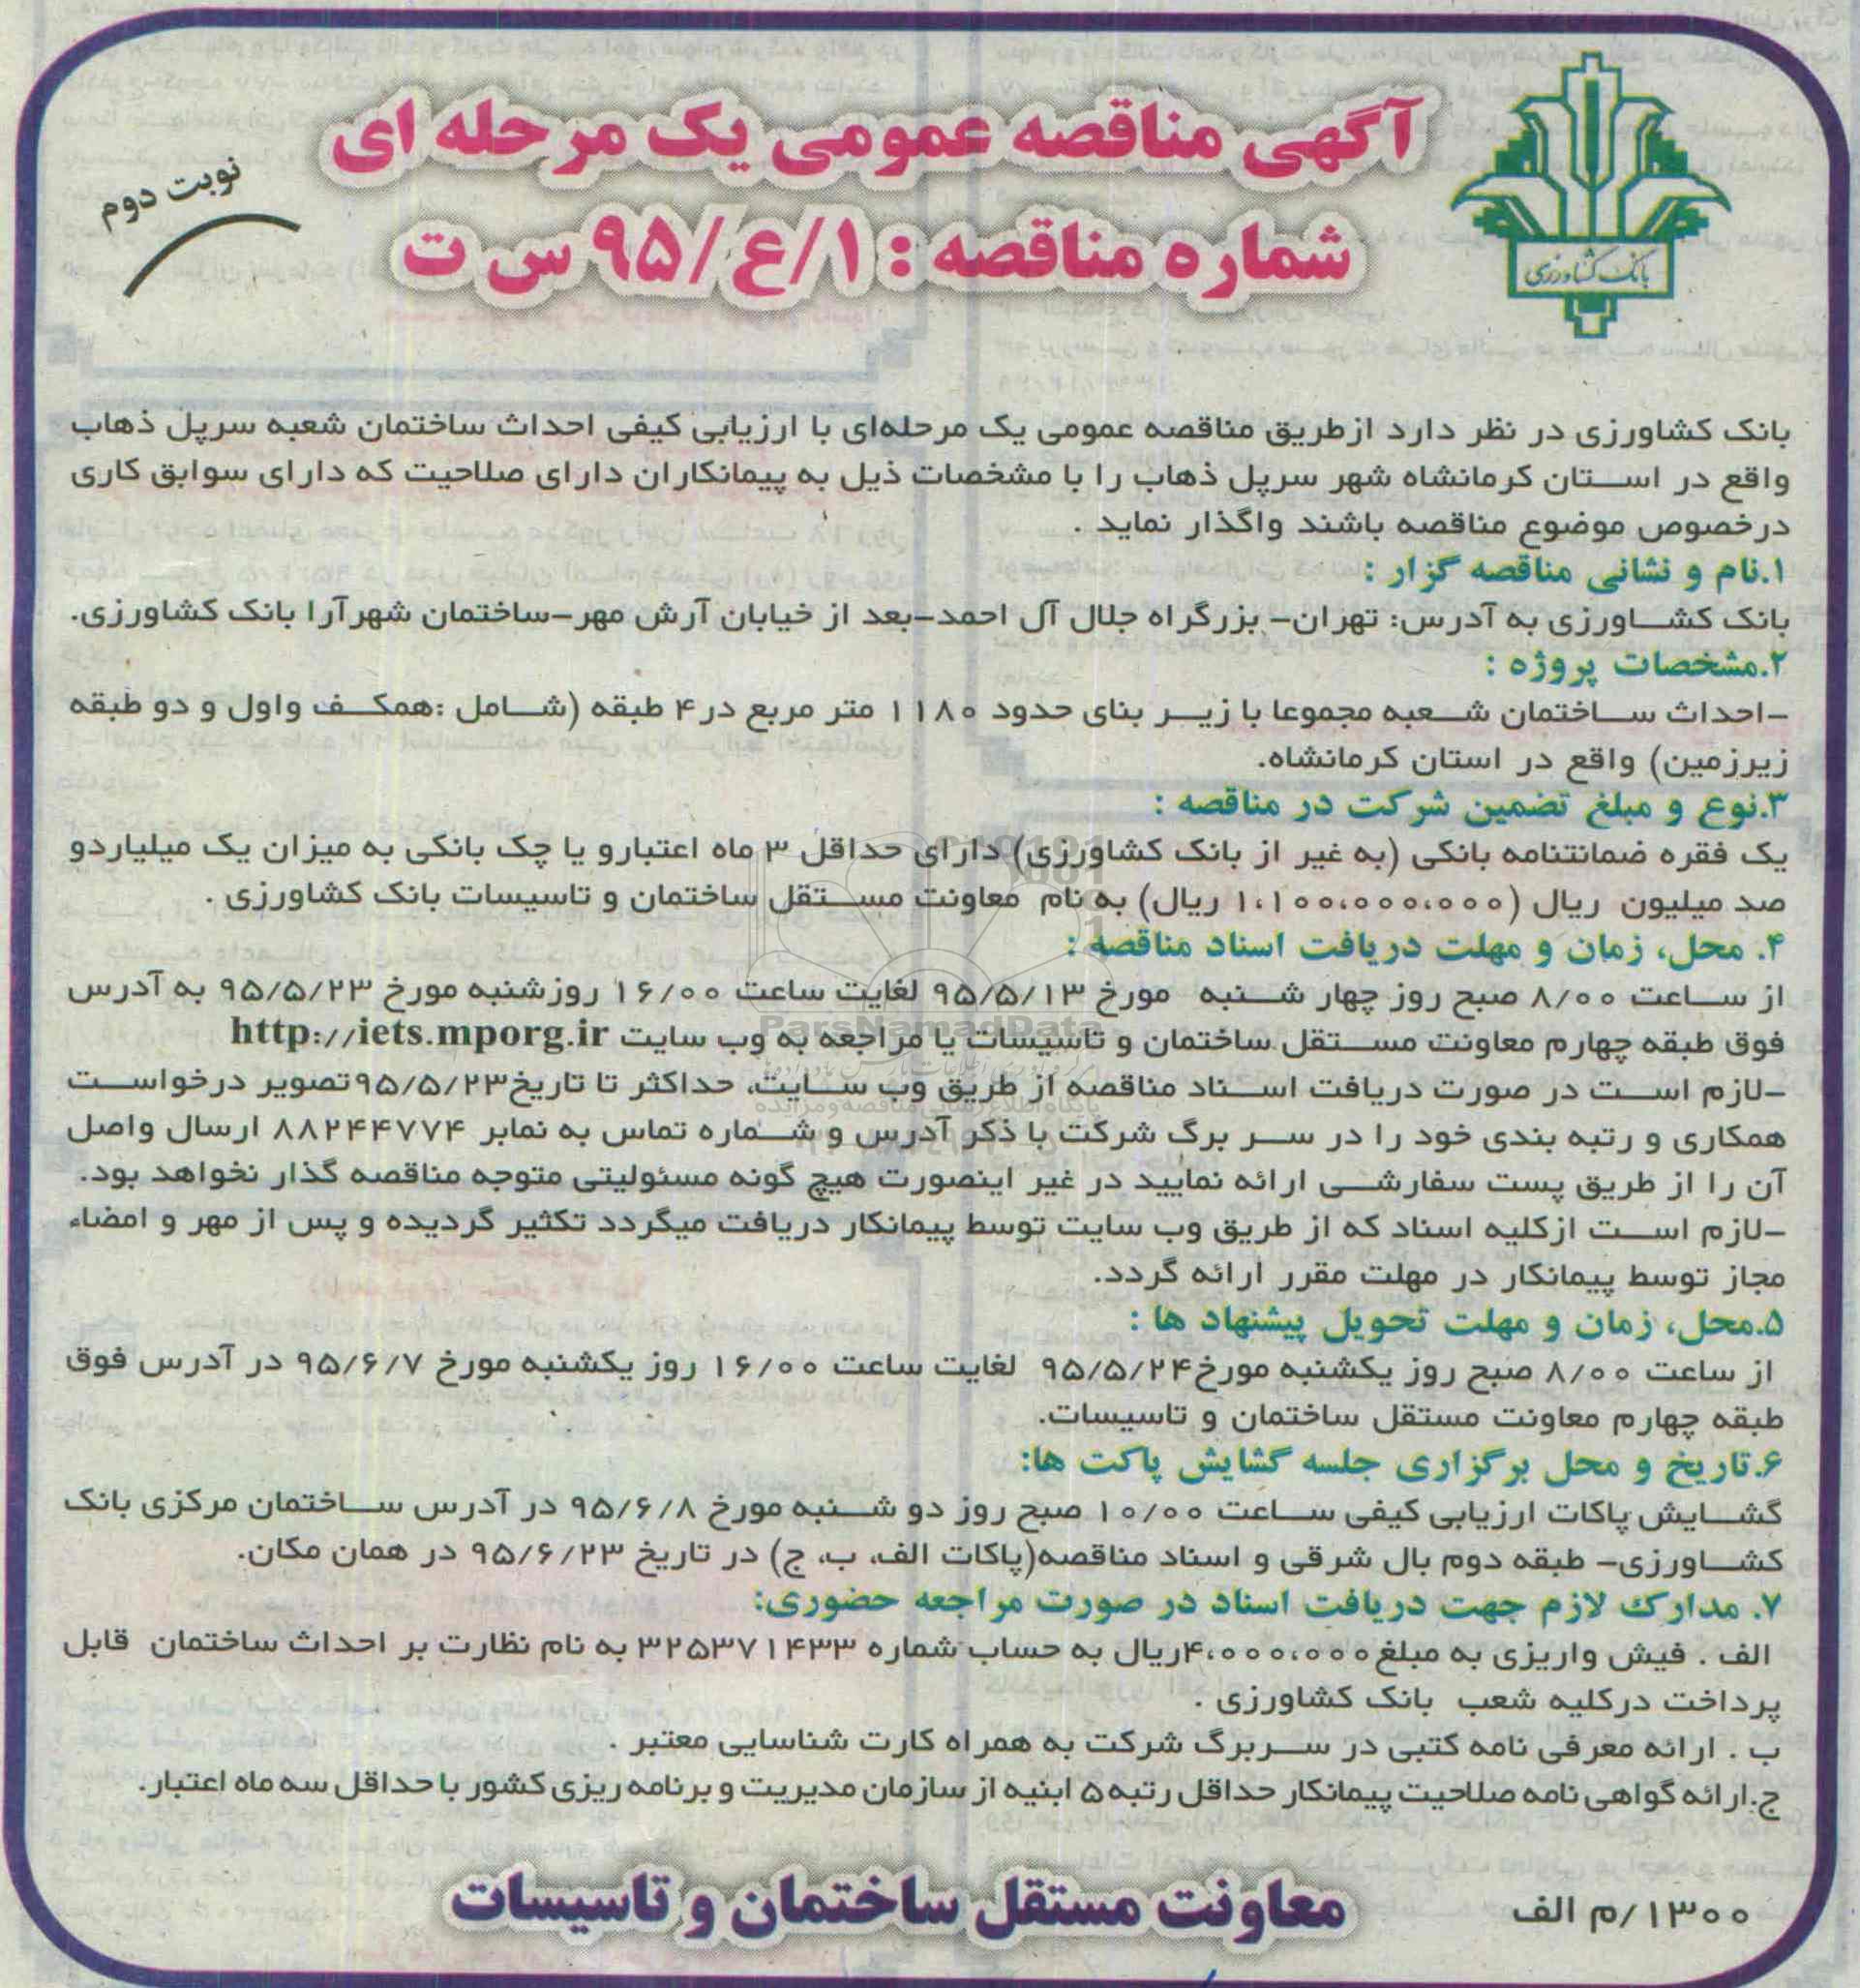 آگهی مناقصه عمومی یک مرحله ای
نوبت دوم
شماره مناقصه : ۱/ع/۹۵ س ت
بانک کشاورزی
بانک کشاورزی در نظر دارد ازطریق مناقصه عمومی یک مرحله‌ای با ارزیابی کیفی احداث ساختمان شعبه سرپل ذهاب
واقع در استان کرمانشاه شهر سرپل ذهاب را با مشخصات ذیل به پیمانکاران دارای صلاحیت که دارای سوابق کاری
درخصوص موضوع مناقصه باشند واگذار نماید .
۱.نام و نشانی مناقصه گزار :
بانک کشاورزی به آدرس: تهران- بزرگراه جلال آل احمد-بعد از خیابان آرش مهر-ساختمان شهرآرا بانک کشاورزی.
۲.مشخصات پروژه :
-احداث ساختمان شعبه مجموعا با زیر بنای حدود ۱۱۸۰ متر مربع در۴ طبقه (شامل :همکف واول و دو طبقه
زیرزمین) واقع در استان کرمانشاه.
۳.نوع و مبلغ تضمین شرکت در مناقصه :
یک فقره ضمانتنامه بانکی (به غیر از بانک کشاورزی) دارای حداقل ۳ ماه اعتبارو یا چک بانکی به میزان یک میلیاردو
صد میلیون ریال (۱،۱۰۰،۰۰۰،۰۰۰ ریال) به نام معاونت مستقل ساختمان و تاسیسات بانک کشاورزی .
۴. محل، زمان و مهلت دریافت اسناد مناقصه :
از ساعت ۸/۰۰ صبح روز چهار شنبه مورخ ۹۵/۵/۱۳ لغایت ساعت ۱۶/۰۰ روزشنبه مورخ ۹۵/۵/۲۳ به آدرس
فوق طبقه چهارم معاونت مستقل ساختمان و تاسیسات یا مراجعه به وب سایت http://iets.mporg.ir
-لازم است در صورت دریافت اسناد مناقصه از طریق وب سایت، حداکثر تا تاریخ۹۵/۵/۲۳تصویر درخواست
همکاری و رتبه بندی خود را در سر برگ شرکت با ذکر آدرس و شماره تماس به نمابر ۸۸۲۴۴۷۷۴ ارسال واصل
آن را از طریق پست سفارشی ارائه نمایید در غیر اینصورت هیچ گونه مسئولیتی متوجه مناقصه گذار نخواهد بود.
-لازم است ازکلیه اسناد که از طریق وب سایت توسط پیمانکار دریافت میگردد تکثیر گردیده و پس از مهر و امضاء
مجاز توسط پیمانکار در مهلت مقرر ارائه گردد.
۵.محل، زمان و مهلت تحویل پیشنهاد ها :
از ساعت ۸/۰۰ صبح روز یکشنبه مورخ۹۵/۵/۲۴ لغایت ساعت ۱۶/۰۰ روز یکشنبه مورخ ۹۵/۶/۷ در آدرس فوق
طبقه چهارم معاونت مستقل ساختمان و تاسیسات.
۶.تاریخ و محل برگزاری جلسه گشایش پاکت ها:
گشایش پاکات ارزیابی کیفی ساعت ۱۰/۰۰ صبح روز دو شنبه مورخ ۹۵/۶/۸ در آدرس ساختمان مرکزی بانک
کشاورزی- طبقه دوم بال شرقی و اسناد مناقصه(پاکات الف، ب، ج) در تاریخ ۹۵/۶/۲۳ در همان مکان.
۷. مدارک لازم جهت دریافت اسناد در صورت مراجعه حضوری:
الف . فیش واریزی به مبلغ۴،۰۰۰،۰۰۰ریال به حساب شماره ۳۲۵۳۷۱۴۳۳ به نام نظارت بر احداث ساختمان قابل
پرداخت درکلیه شعب بانک کشاورزی .
ب . ارائه معرفی نامه کتبی در سربرگ شرکت به همراه کارت شناسایی معتبر .
ج.ارائه گواهی نامه صلاحیت پیمانکار حداقل رتبه۵ ابنیه از سازمان مدیریت و برنامه ریزی کشور با حداقل سه ماه اعتبار.
۱۳۰۰/م الف
معاونت مستقل ساختمان و تاسیسات
ParsNamadData